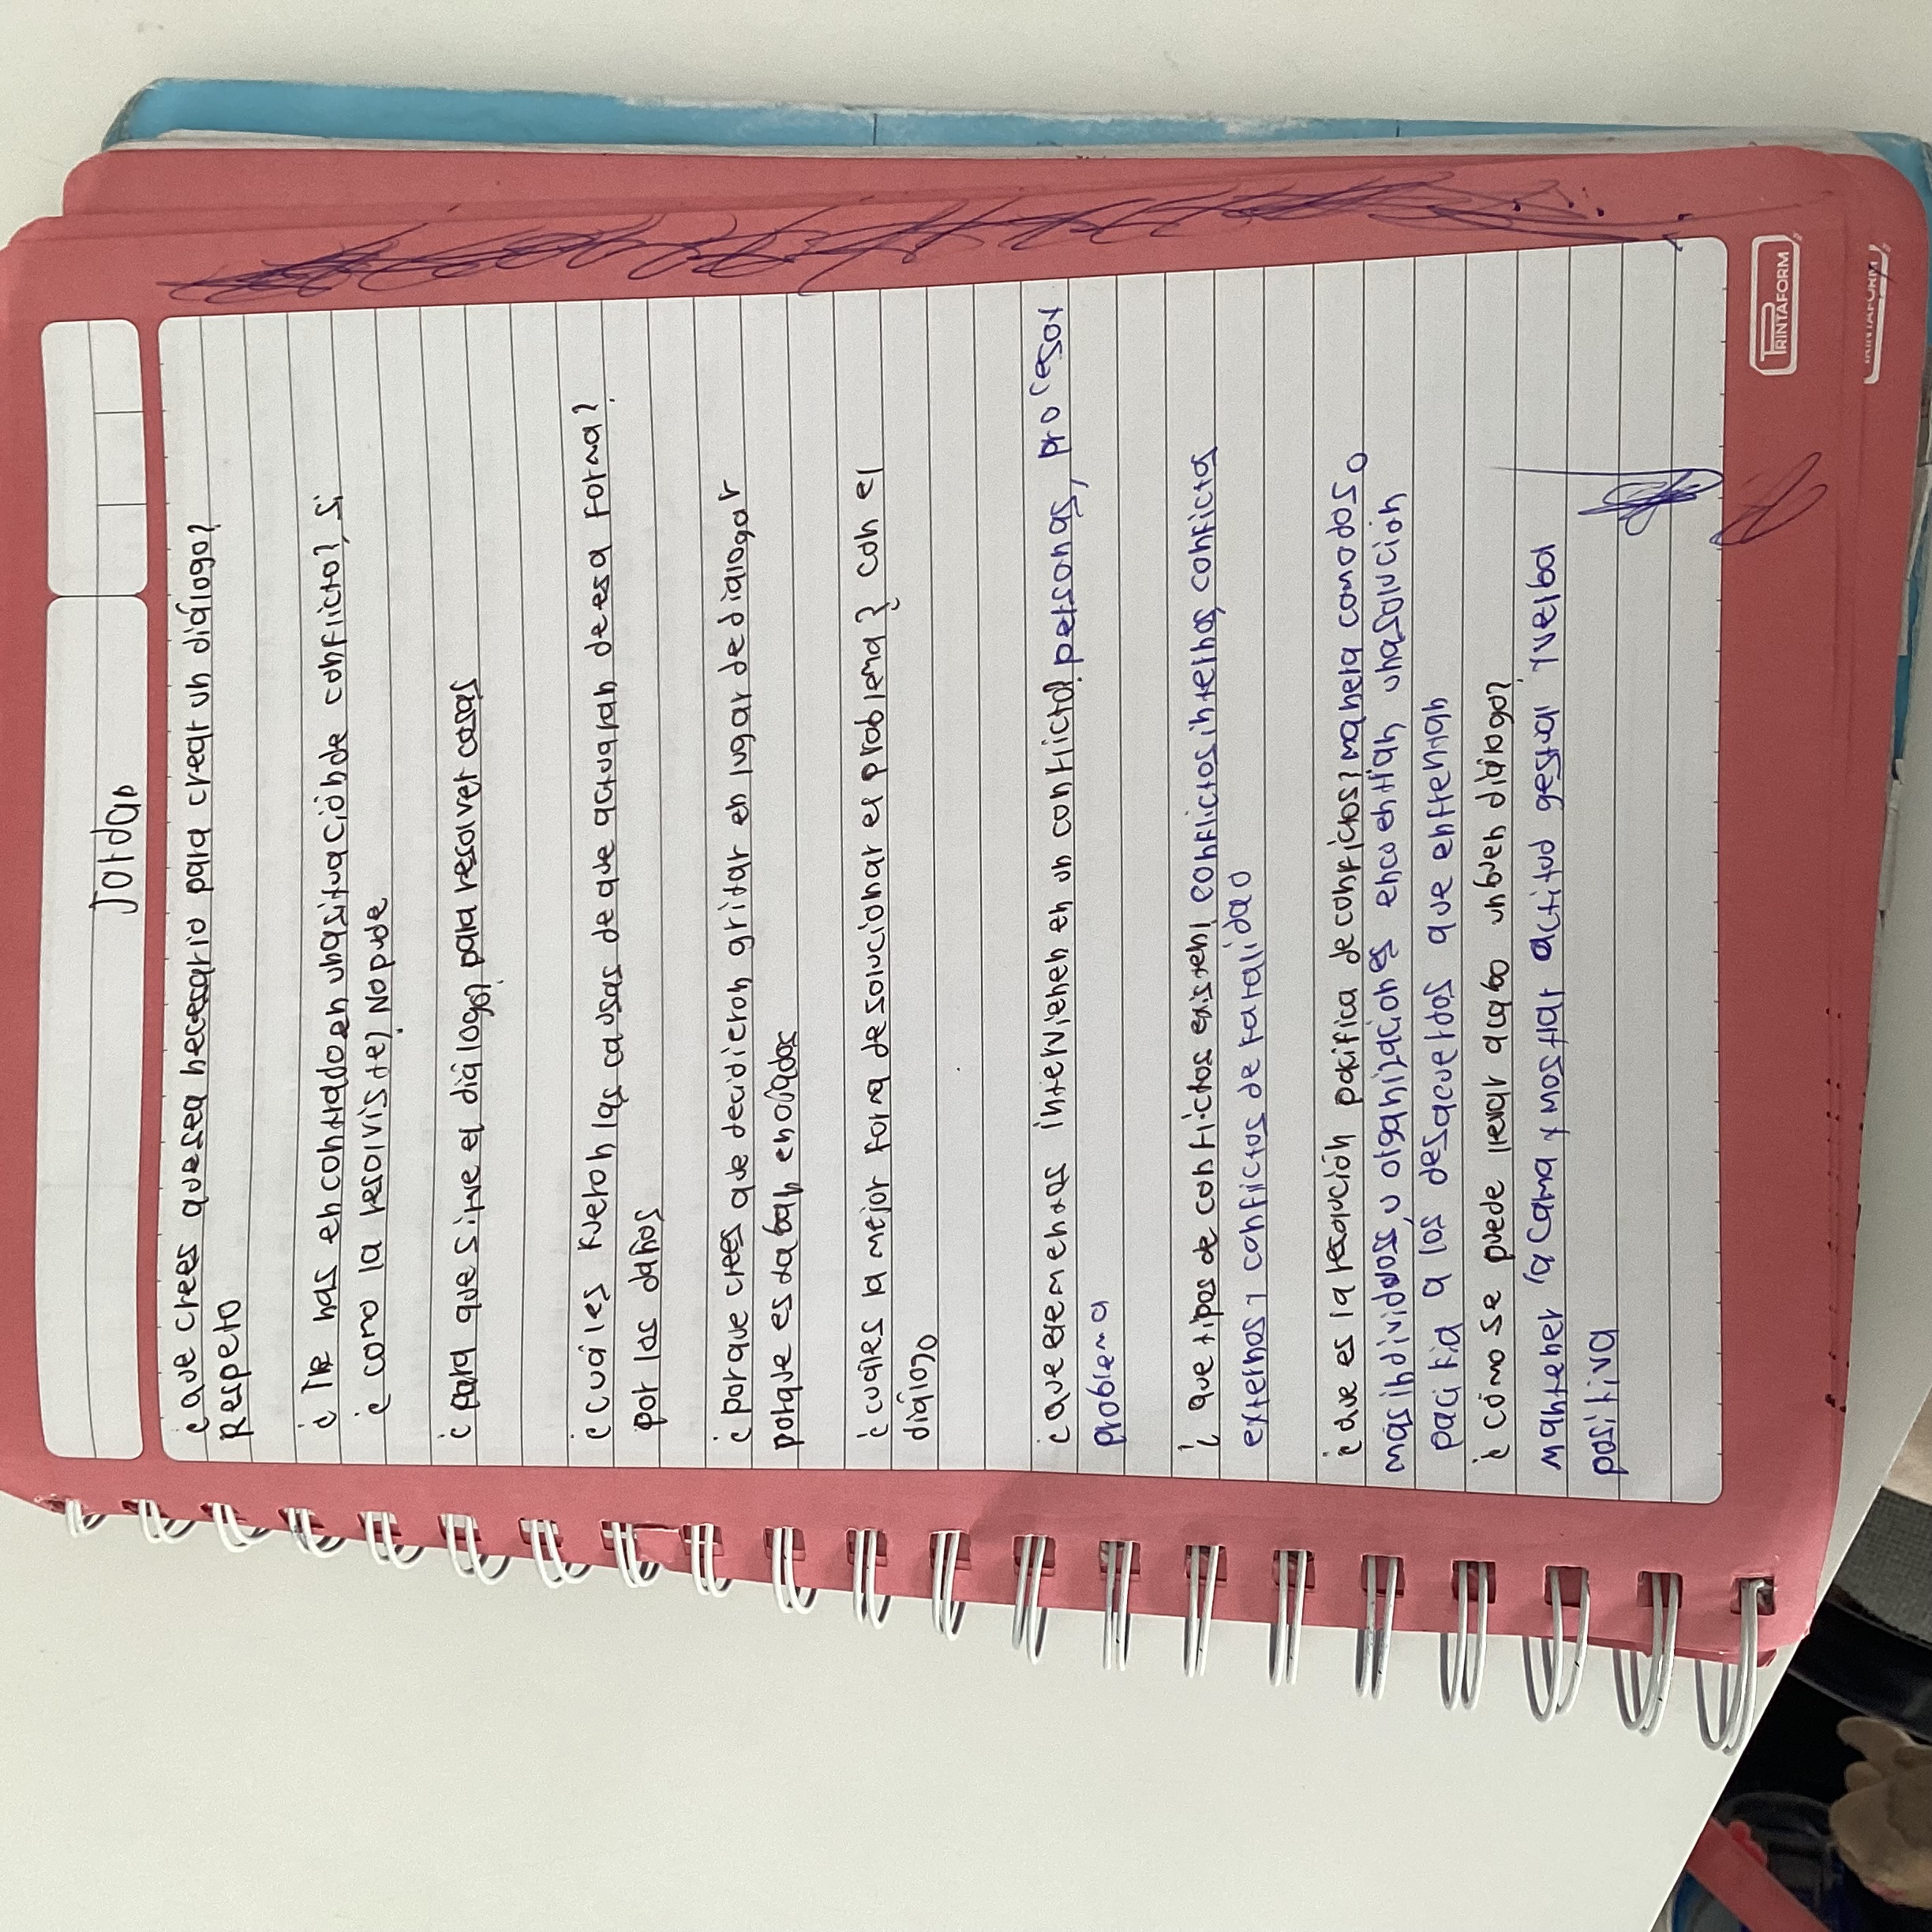 Jordan
¿que crees que sea necesario para crear un diálogo?
Respeto
¿Te has encontrado en una situación de conficto? Si
¿como la resolviste? No pude
¿para que sirve el diálogo? para resolver cosas
¿cuáles fueron las causas de que actuaran de esa forma?
por los daños
¿porque crees que decidieron gritar en lugar de dialogar
porque estaban enojados
¿cuáles la mejor forma de solucionar el problema? con el
diálogo
¿que elementos intervienen en un conflicto? personas, procesoy
problema
¿que tipos de conflictos existen? conflictos internos, conflictos
externos y conflictos de
¿que es la resolución pacífica de conflictos? manera como dos o
más individuos u organizaciones encuentran una solución
pacifica a los desacuerdos que enfrentan
¿cómo se puede llevar acabo un buen diálogo?
mantener la cama y mostrar actitud gestral y verbal
positiva
PRINTAFORM
PRINTAFORM